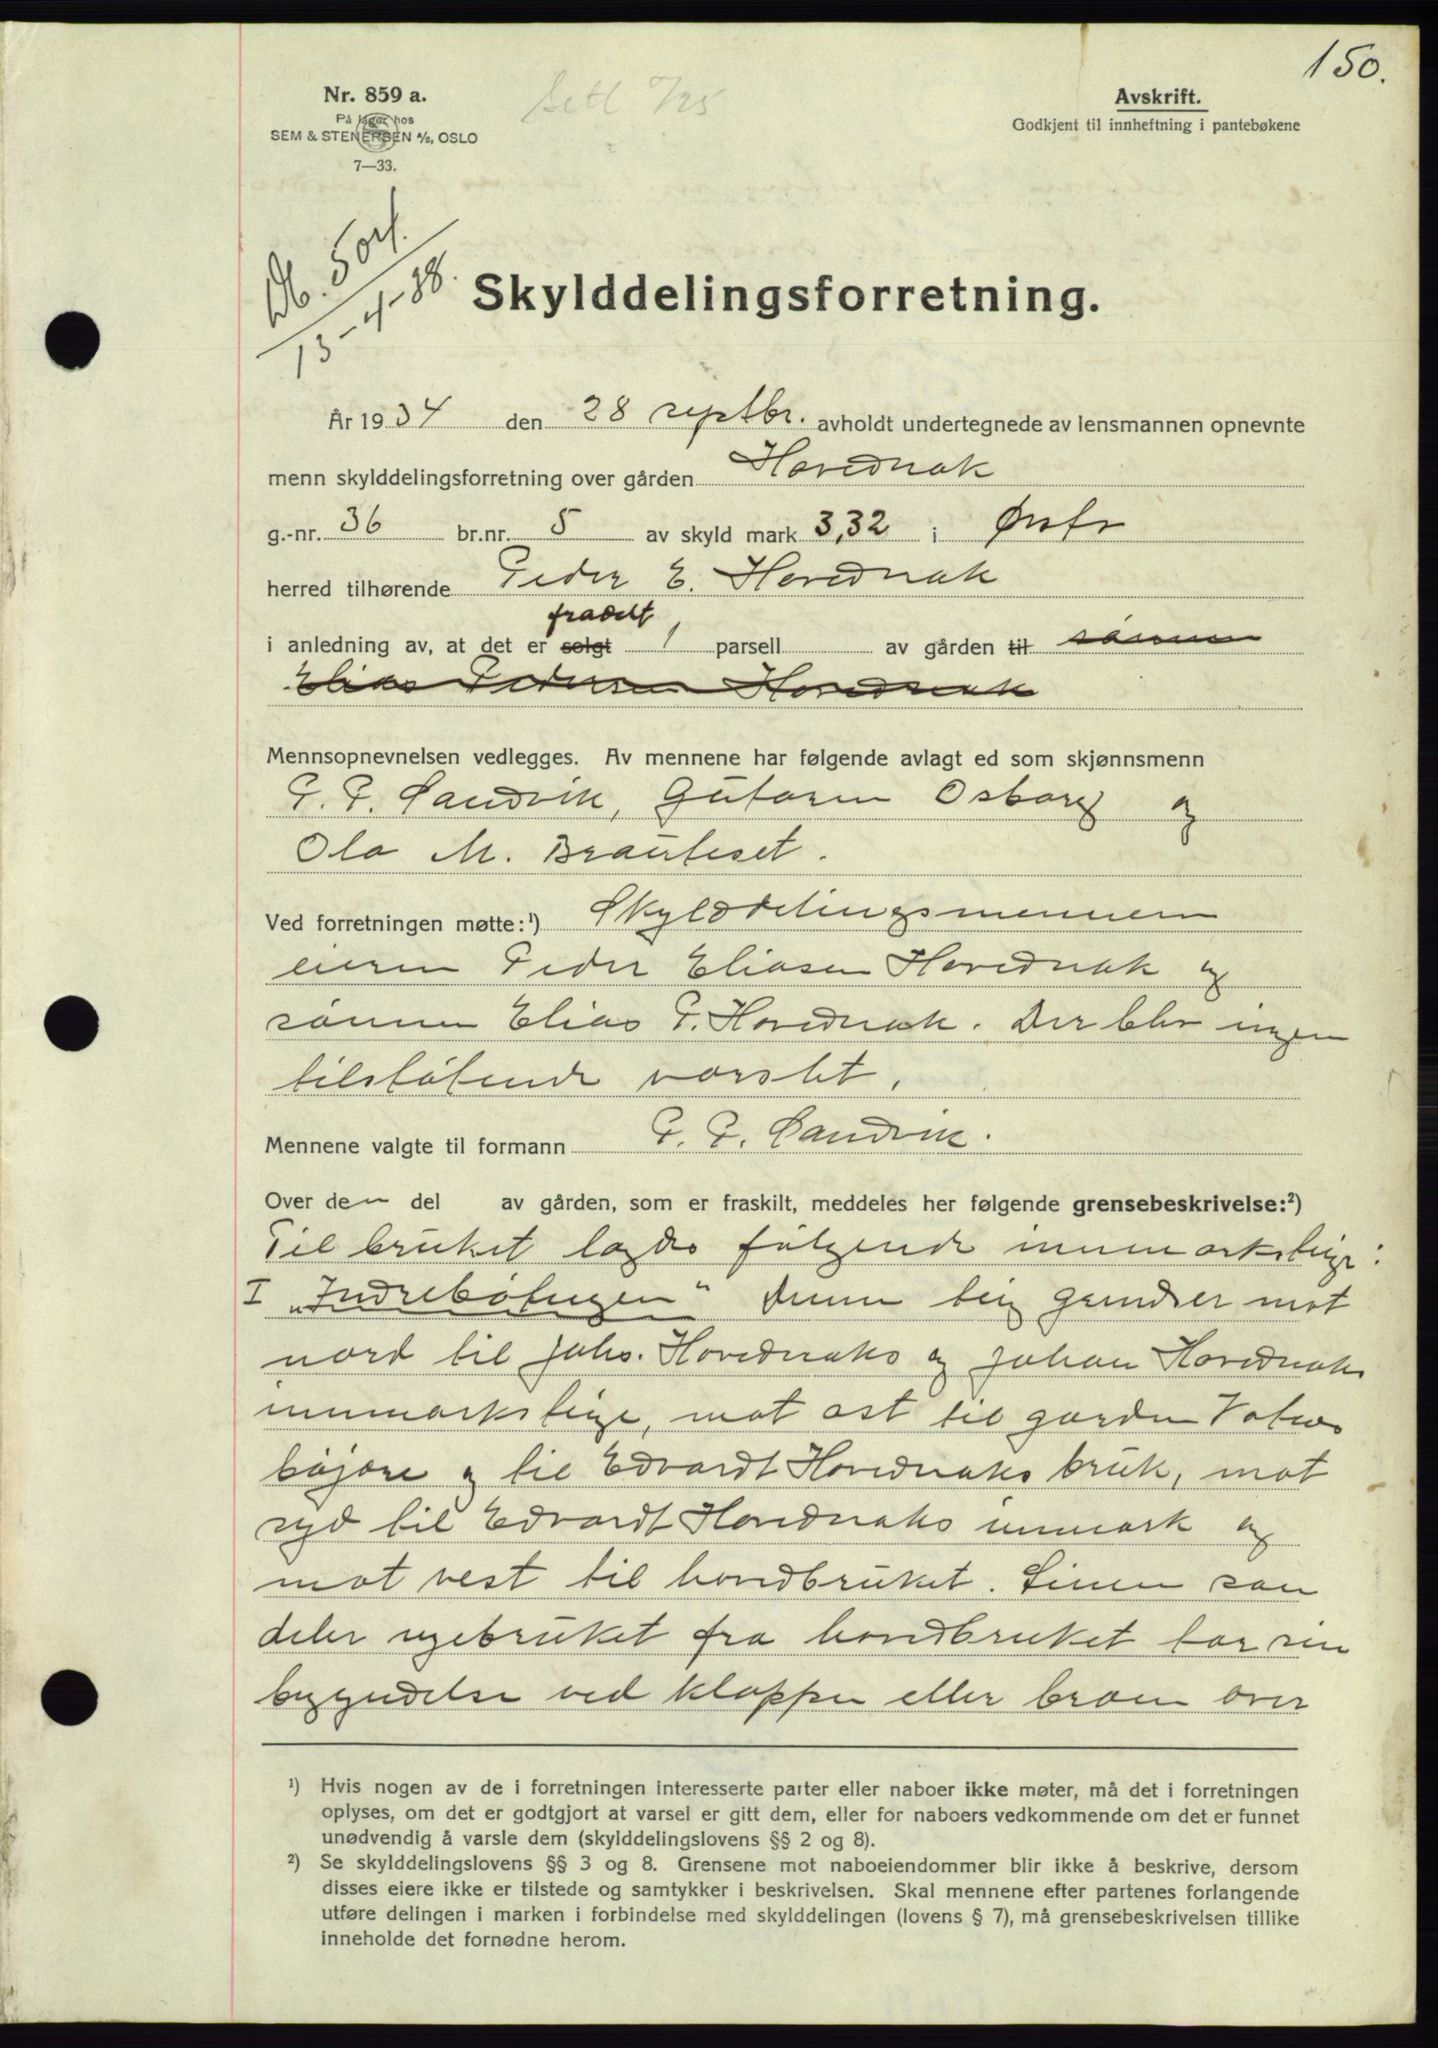 150.
Nr. 859 a.
På lager hos
SEM & STENERSEN A/S, OSLO
7—33.
Avskrift.
Godkjent til innheftning i pantebøkene
13-4-38.
Skylddelingsforretning.
År 1934 den 28 septbr. avholdt undertegnede av lensmannen opnevnte
menn skylddelingsforretning over gården Hovednak
g.-nr. 36 br.nr. 5 av skyld mark 3,32 i Ørsta
herred tilhørende Peder E. Hovednak
fradelt
i anledning av, at det er solgt 1 parsell av gården til sønnen
Elias Pedersen Hovednak
Mennsopnevnelsen vedlegges. Av mennene har følgende avlagt ed som skjønnsmenn
P. P. Sandvik, Gutorm Osborg og
Ola M. Brauteset.
Ved forretningen møtte:¹) Skylddelingsmennene
eieren Peder Eliasen Hovednak og
sønnen Elias P. Hovednak. Der blev ingen
tilstøtende varslet.
Mennene valgte til formann P. P. Sandvik.
Over den del av gården, som er fraskilt, meddeles her følgende grensebeskrivelse:²)
Til bruket lagdes følgende innmarksteige:
I „Indrebøteigen" Denne teig grendser mot
nord til Johs. Hovednaks og Johan Hovednaks
innmarksteige, mot øst til garden
og til Edvardt Hovednaks bruk, mot
syd til Edvardt Hovednaks innmark og
mot vest til hovedbruket. Linen som
deler nyebruket fra hovedbruket tar sin
begyndelse ved kloppen eller broen over
¹) Hvis nogen av de i forretningen interesserte parter eller naboer ikke møter, må det i forretningen
oplyses, om det er godtgjort at varsel er gitt dem, eller for naboers vedkommende om det er funnet
unødvendig å varsle dem (skylddelingslovens §§ 2 og 8).
²) Se skylddelingslovens §§ 3 og 8. Grensene mot naboeiendommer blir ikke å beskrive, dersom
disses eiere ikke er tilstede og samtykker i beskrivelsen. Skal mennene efter partenes forlangende
utføre delingen i marken i forbindelse med skylddelingen (lovens § 7), må grensebeskrivelsen tillike
inneholde det fornødne herom.